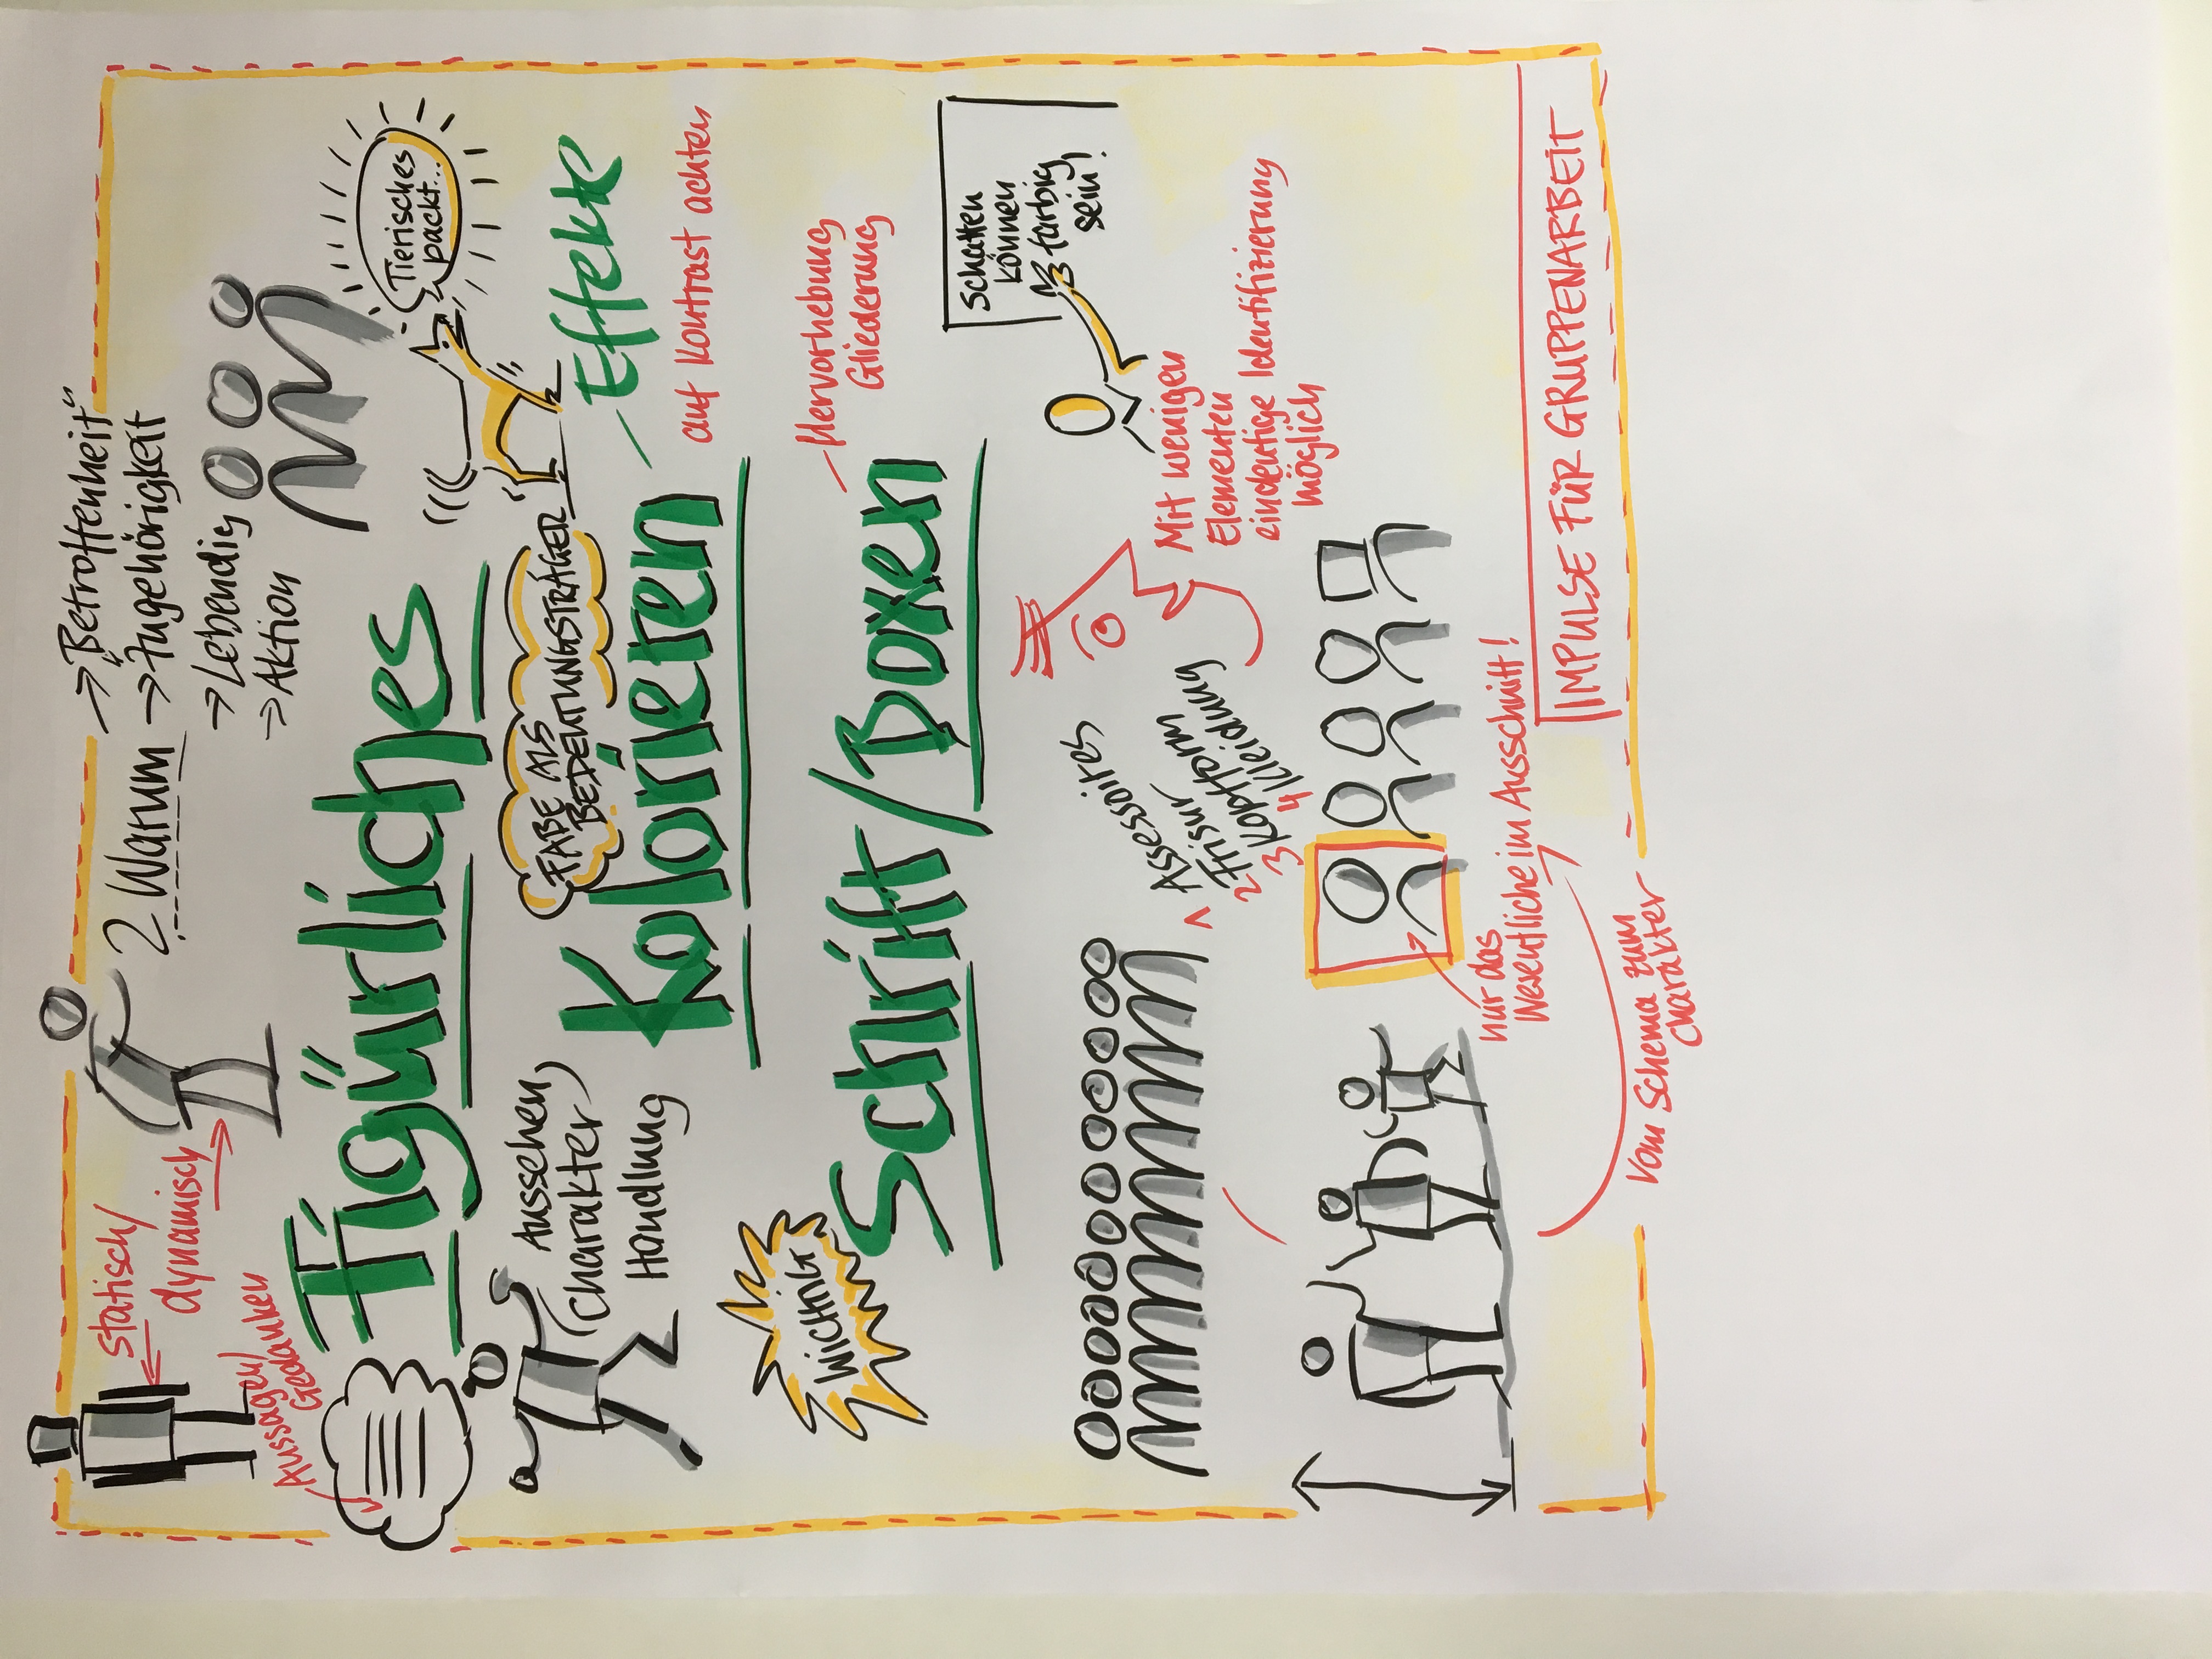 statisch/
dynamisch
2 Warum
→ "Betroffenheit"
→ Zugehörigkeit
→ Lebendig
→ Aktion
Aussagen/
Gedanken
Figürliches
Tierisches
packt...
Aussehen,
(Charakter)
Handlung
FABE ALS
BEDEUTUNGSTRÄGER
Kolorieren
– Effekte
auf Kontrast achten
WICHTIG
Schrift/Boxen
– Hervorhebung
Gliederung
Schatten
können
farbig
sein!
1 Assessoires
2 Frisur
3 Kopfform
4 Kleidung
Mit wenigen
Elementen
eindeutige Identifizierung
möglich
nur das
Wesentliche im Ausschnitt!
Vom Schema zum
Charakter
IMPULSE FÜR GRUPPENARBEIT